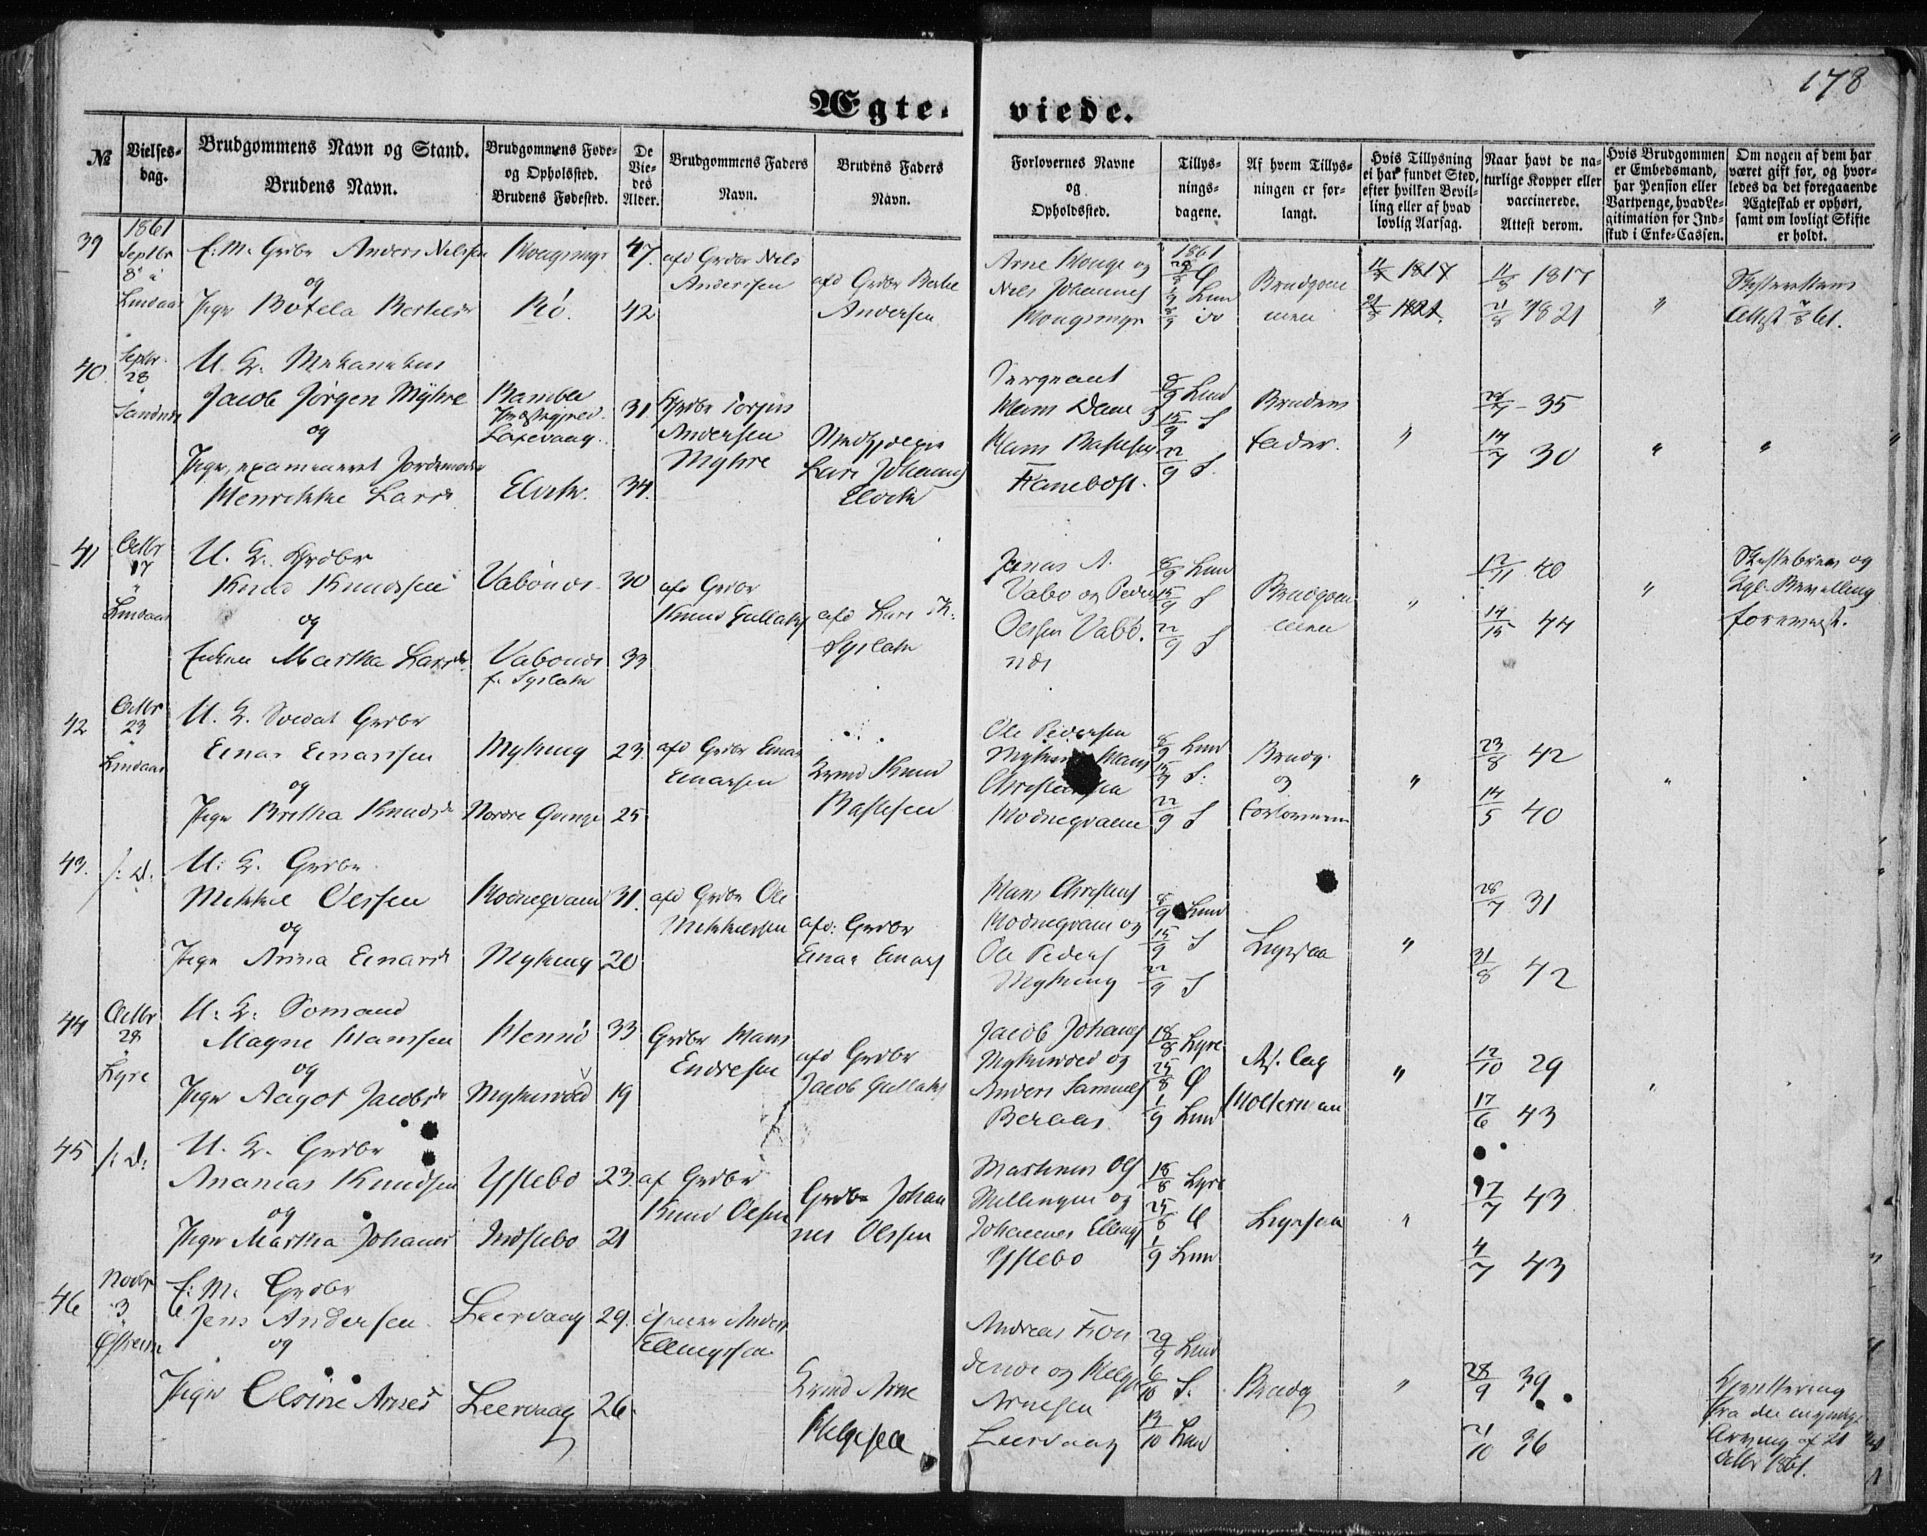 178
Ægte-
viede.
№
Vielses-
dag.
Brudgommens Navn og Stand.
Brudens Navn.
Brudgommens Føde-
og Opholdssted.
Brudens Fødested.
De
Vie-
des
Alder.
Brudgommens Faders
Navn.
Brudens Faders
Navn.
Forlovernes Navne
og
Opholdssted.
Tillys-
nings-
dagene.
Af hvem Tillys-
ningen er for-
langt.
Hvis Tillysning
ei har fundet Sted,
efter hvilken Bevil-
ling eller af hvad
lovlig Aarsag.
Naar havt de na-
turlige Kopper eller
vaccinerede.
Attest derom.
Hvis Brudgommen
er Embedsmand,
har Pension eller
Vartpenge, hvad Le-
gitimation for Ind-
skud i Enke-Cassen.
Om nogen af dem har
været gift før, og hvor-
ledes da det foregaaende
Ægteskab er ophørt,
samt om lovligt Skifte
er holdt.
39
1861
Septbr
8
Lindaas
E. M. Grdbr Anders Nilssen
og
Pige Botela Bertels
Rø.
47.
42
afd Grdbr Nils
Andersen
Andersen
Arne Kouge og
Nils Johannes
1861
Brudgom
men
11/8 1817
21/8 1821
11/8 1817
21/8 1821
"
Attest
40.
Septbr.
28
U. K. Mekanikus
Jacob Jørgen Myhre
og
Pige, examineret Jordemoder
Henrikke Lars
Bamble
Præstegjeld
Laxevaag.
Elvik.
31.
34.
Grdbr Torgius
Andersen
Myhre
Lars Johannes
Elvik
Sergeant
Hans Dane
Hans
Fanebost.
8/9 Lind
15/9 S
22/9 S
Brudens
Fader.
"
28/7 - 35
14/7 30
"
"
41
Octbr
17
"
Lindaas
U. K. Grdbr
Knud Knudssen
og
Enken Martha Lars
Vabønæs.
Vabønæs
f. Syslak
30
33
afd Grdbr
Knud Gullaks
afd Lars K.
Syslak
Jonas A.
Vabø og Peder
Olssen Vabø.
næs
8/9 Lind
15/9 S
22/9 S
Brudgom
men
"
12/11 40
14/15 44
"
Skiftebrev og
Kgl. Bevilling
forevist.
42
Octbr
23
"
Lindaas
U. K. Soldat Grdbr
Einar Einarssen
og
Pige Britha Knuds
Myking
Nordre Qvinge
23.
25
afd Grdbr Einar
Einarsen
Grdmd Knud
Ole Pedersen
Myking Hans
Christensen
Hodneqvame
8/9 Lind
15/9 S.
22/9 S
Brudg.
og
Forloveren
"
23/8 42
14/5 40
"
43.
/: D.
U. K. Grdbr
Mikkel Olssen
og
Pige Anna Einars
Hodneqvam
Myking
31.
20
afd Grdbr Ole
Mikkelsen
afd. Grdbr
Einar Einars
Hans Christens
Hodneqvam og
Ole Peders
Myking
8/9 Lind
15/9 S
22/9 S
Ligesaa
"
28/7 31
31/8 42
44
Octbr
28
"
Lyre
U. K. Sømand
Magne Hanssen
og
Pige Aagot Jacobs
Hennø
33
19
Grdbr Hans
Endresen
afd Grdbr
Jacob Gullaks
Jacob Johans
og
Anders Samuels
Beraas
18/8 Lyre
25/8 Ø
1/9 Lind
"
12/10 29
17/6 43
"
45
/: D:
U. K. Grdbr
Ananias Knudsen
og
Pige Martha Johans
Ystebø
Indstebø
23.
21
af Grdbr
Knud Olsen
Grdbr Johan
nes Olssen
Martinus Ols
Millingen og
Johannes Ellings
Ystebø
18/8 Lyre
25/8 Ø
1/9 Lind
Ligesaa
"
17/7 43
4/7 43
46
Novbr
3
"
E: M. Grdbr
Jens Andersen
og
Pige Olsine Arnes
Leervaag
Leervaag
29.
26.
Anders
Ellingssen
Grdmd Arne
Helgesen
Andreas Fon
denæs og Helge
Arnesen
Leervaag
29/9 Lind
6/10 S.
13/10 Lind
Brudg
"
28/9 39
21/10 36
af 21
Octbr 1861.